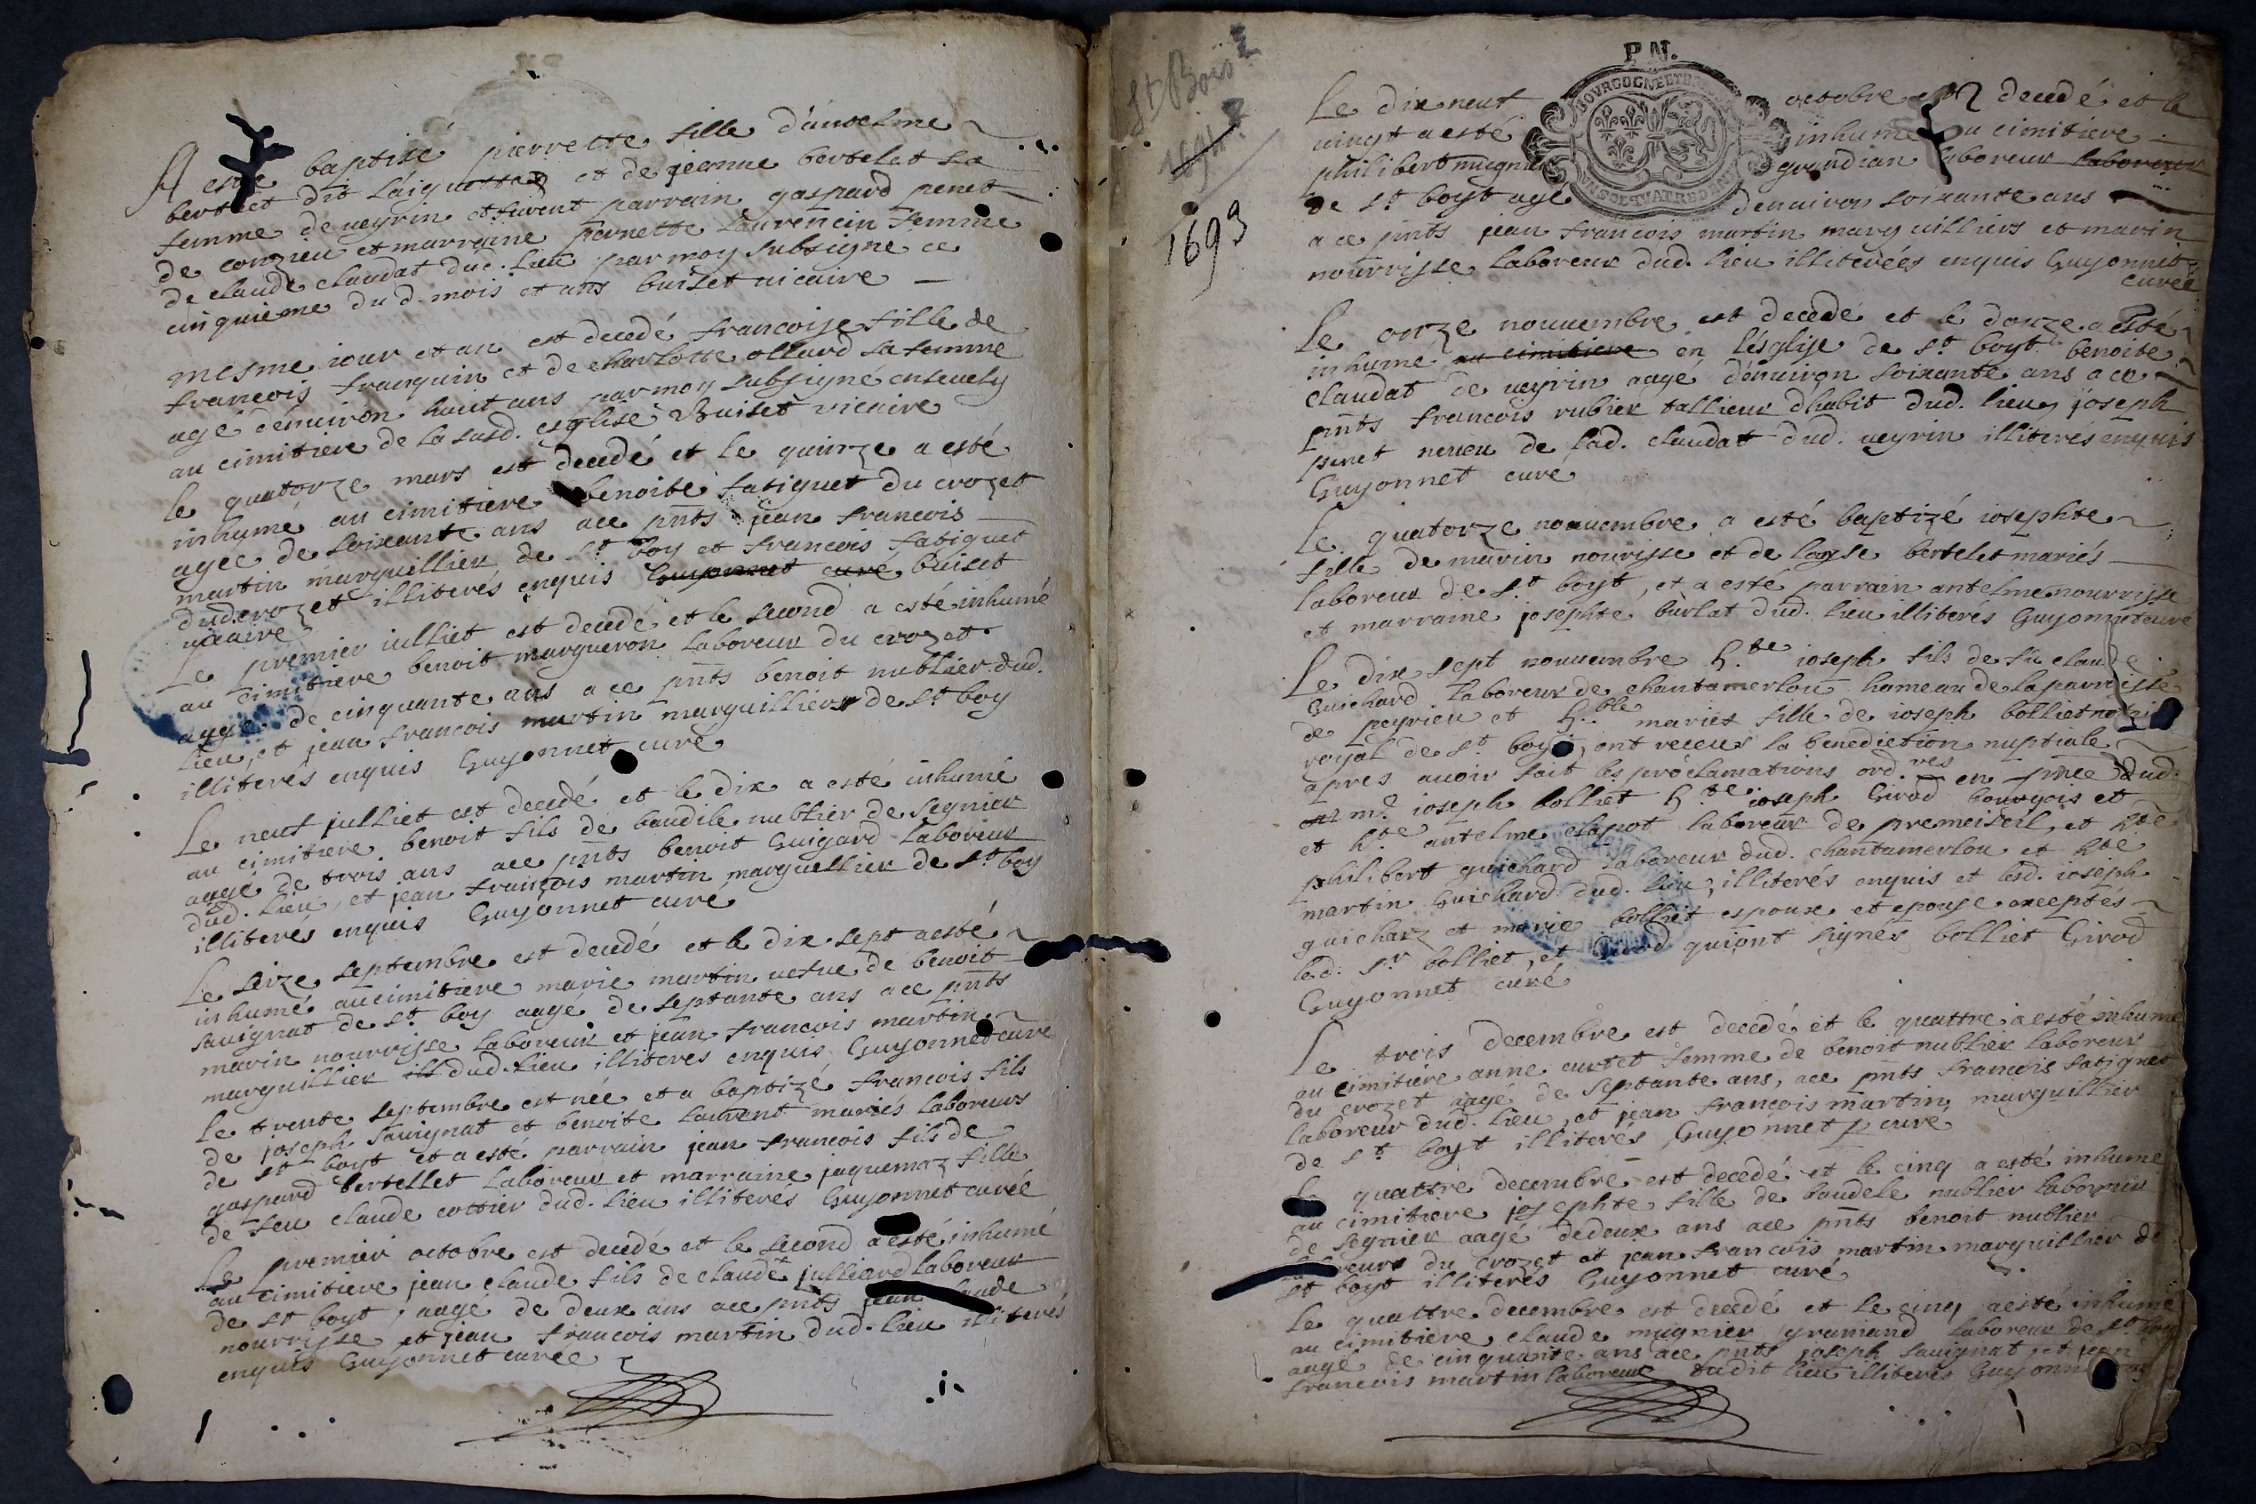 A esté baptisé pierrette fille d'anselme
bertelet dit l'aiguettaz et de jeanne bertelet sa
femme de veyrin et furent parrain gaspard penet
de conzieu et marraine pernette laurencin femme
de claude claudat dud. lieu par moy subsigne ce
cinquieme dud mois et ans buiset vicaire
mesme iour et an est decedé francoise fille de
francois franquin et de charlotte ollard sa femme
agé d'enuiron huut ans par moy subsigné enseuely
au cimitiere de la susd. esglise Buiset vicaire
le quatorze mars est decedé et le quinze a esté
inhumé au cimitiere benoite fatiguet du crozet
agee de soixante ans a ce pnts jean francois
martin marguillier de st boy et francois fatiguet
dud crozet illiterés enquis Guyonnet curé Buiset
vicaire
Le premier iulliet est decedé et le second a esté inhumé
au cimitiere benoit margueron laboreur du crozet
aagé de cinquante ans a ce pnts benoit nublier dud.
lieu, et jean francois martin marguilliers de st boy
illiterés enquis Guyonnet curé
Le neuf julliet est decedé et le dix a esté inhumé
au cimitiere benoit fils de baudile nublier de segnier
aagé de trois ans a ce pnts benoit Guigard laboreur
dud. lieu, et jean françois martin marguellier de st boy
illiterés enquis Guyonnet curé
Le seize septembre est decedé et le dix sept a esté
inhumé au cimitiere marie martin vefue de benoit
sauignat de st boy aagé de septante ans a ce pnts
marin nourrisse laboreur et jean francois martin
marguillier ill dud. lieu illiteres enquis Guyonnet curé
Le trente septembre est née et a baptizé francois fils
de joseph sauignat et benoite laurent mariés laboreurs
de st boyt et a esté parrain jean francois fils de
gaspard bertellet laboreur et marraine jaquemaz fille
de feu claude cottier dud. lieu illiteres Guyonnet curé
Le premier octobre est decedé et le second a esté inhumé
au cimitiere jean claude fils de claude julliard laboreur
de st boyt, aagé de deux ans a ce pnts jean claude
nourrisse et jean francois martin dud. lieu illiterés
enquis Guyonnet curée
St Bois
1693
P. N.
BOVRGOGNE ET BRESSE
VN SOL QVATRE DEN
Le dix neuf octobre est decedé et le
vingt a esté inhumé au cimitiere
philibert mugnier grandian laboreur laboreur
de st boyt agé denuiron soixante ans
a ce pnts jean francois martin marguilliers et marin
nourrisse laboreur dud. lieu illiterées enquis Guyonnet
curée
Le onze nouuembre est decedé et le douze a esté
inhumé au cimitiere en l'esglise de st boyt benoite
claudat de veyrin aagé d'enuiron soixante ans a ce
pnts francois rubier tallieur dhabit dud. lieu, joseph
penet neueu de lad. claudat dud. veyrin illiterés enquis
Guyonnet cure
Le quatorze nouuembre a esté baptizé iosephte
fille de marin nourisse et de loyse bertelet mariés
laboreur de st boyt, et a esté parrain antelme nourrisse
et marraine josephte burlat dud. lieu illiterés Guyonnet curé
Le dix sept nouuembre h.te ioseph fils de fu claude
Guichard laboreur de chantamerlou hameau de la parroisse
de peyrieu et h.ble mariez fille de ioseph bolliet notaire
royal de st boyt, ont receus la benediction nuptiale
apres auoir fait les proclamations ord.res en pnce dud.
me ioseph bolliet h.te ioseph Girod bourgois et
et h.te antelme clapot laboreur de premeisel, et h.te
philibert guichard laboreur dud. chantamerlou et h.te
martin Guichard dud. lieu, illiterés enquis et lesd. ioseph
guichard et marie bolliet espoux et epouse exceptés
led. sr bolliet, et Girod qui ont signés bolliet Girod
Guyonnet curé
Le trois decembre est decedé et le quattre a esté inhumé
au cimitiere anne curtet femme de benoit nublier laboreur
du crozet aagé de septante ans, a ce pnts francois fatiguet
laboreur dud. lieu, et jean françois martin marguillier
de st boyt illiterés Guyonnet curé
Le quattre decembre est decedé et le cinq a esté inhumé
au cimitiere josephte fille de baudele nublier laboreur
de segnier aagé de deux ans a ce pnts benoit nublier
laboreurs du crozet et jean francois martin marguillier de
st boyt illiterés Guyonnet curé
Le quattre decembre est decedé et le cinq a esté inhumé
au cimitiere claude mugnier gramand laboreur de st boy
aagé de cinquante ans a ce pnts joseph sauignat et jean
francois martin laboreur dudit lieu illiterés Guyonnet